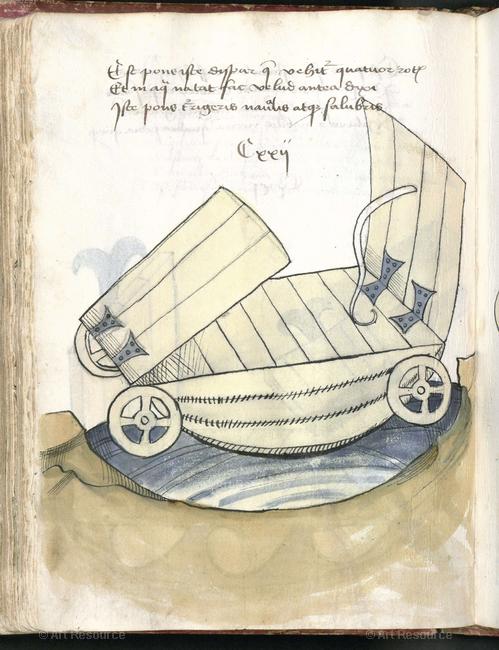 Est pons iste dispar qi vehit quatuor rotis
Et in aq natat sic velud antea dixi
Iste pons trigeris navilis atq salubris
Cxxij
© Art Resource
© Art Resource